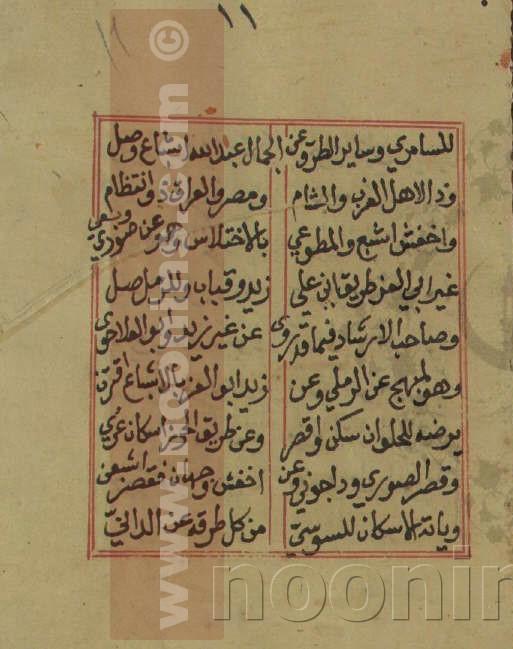 ١١
للسامري وساير الطرق عن الجمال عبد الله اشباع وصل
وذا لاهل الغرب والشام ومصر والعراق ذو انتظام
واخفش اشبع والمطوعي بالاختلاس وهو عن صوري وبقي
غير ابي العز طريقا بن علي زيد وقباب وللرمل صل
وصاحب الارشاد فيما قد روى عن غير زيد وابو العلا حوى
وهو لمبهج عن الرملي وعن زيد ابو العز بالاشباع اقرن
يرضه للحلوان سكن واقصر وعن طريق اسكان
وقصر الصوري وداجوني وعن اخفش وجهان فقصر اشبعن
وياته الاسكان للسوسي من كل طرقه عن الداني
www.noorlns.com ©
noorin